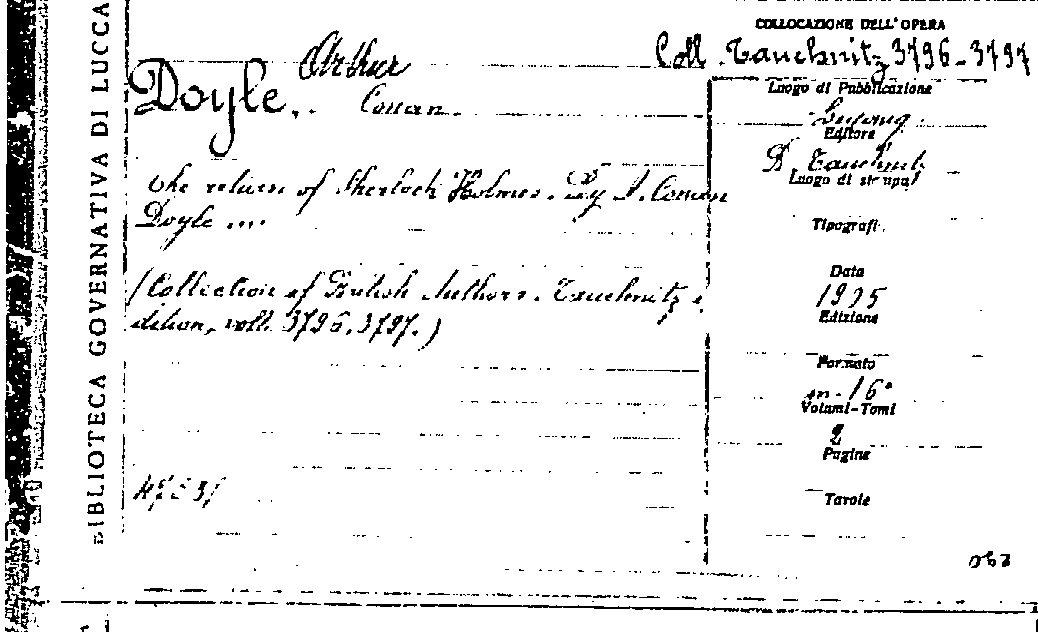 BIBLIOTECA GOVERNATIVA DI LUCCA
COLLOCAZIONE DELL'OPERA
Coll. Tauchnitz 3796-3797
Doyle, Arthur Conan
The return of Sherlock Holmes. By A. Conan
Doyle ...
(Collection of British Authors. Tauchnitz e-
dition, voll. 3796. 3797.)
Luogo di Pubblicazione
Editore
B. Tauchnitz
Luogo di stampa
Tipografi
Data
1905
Edizione
Formato
in-16°
Volumi-Tomi
2
Pagine
Tavole